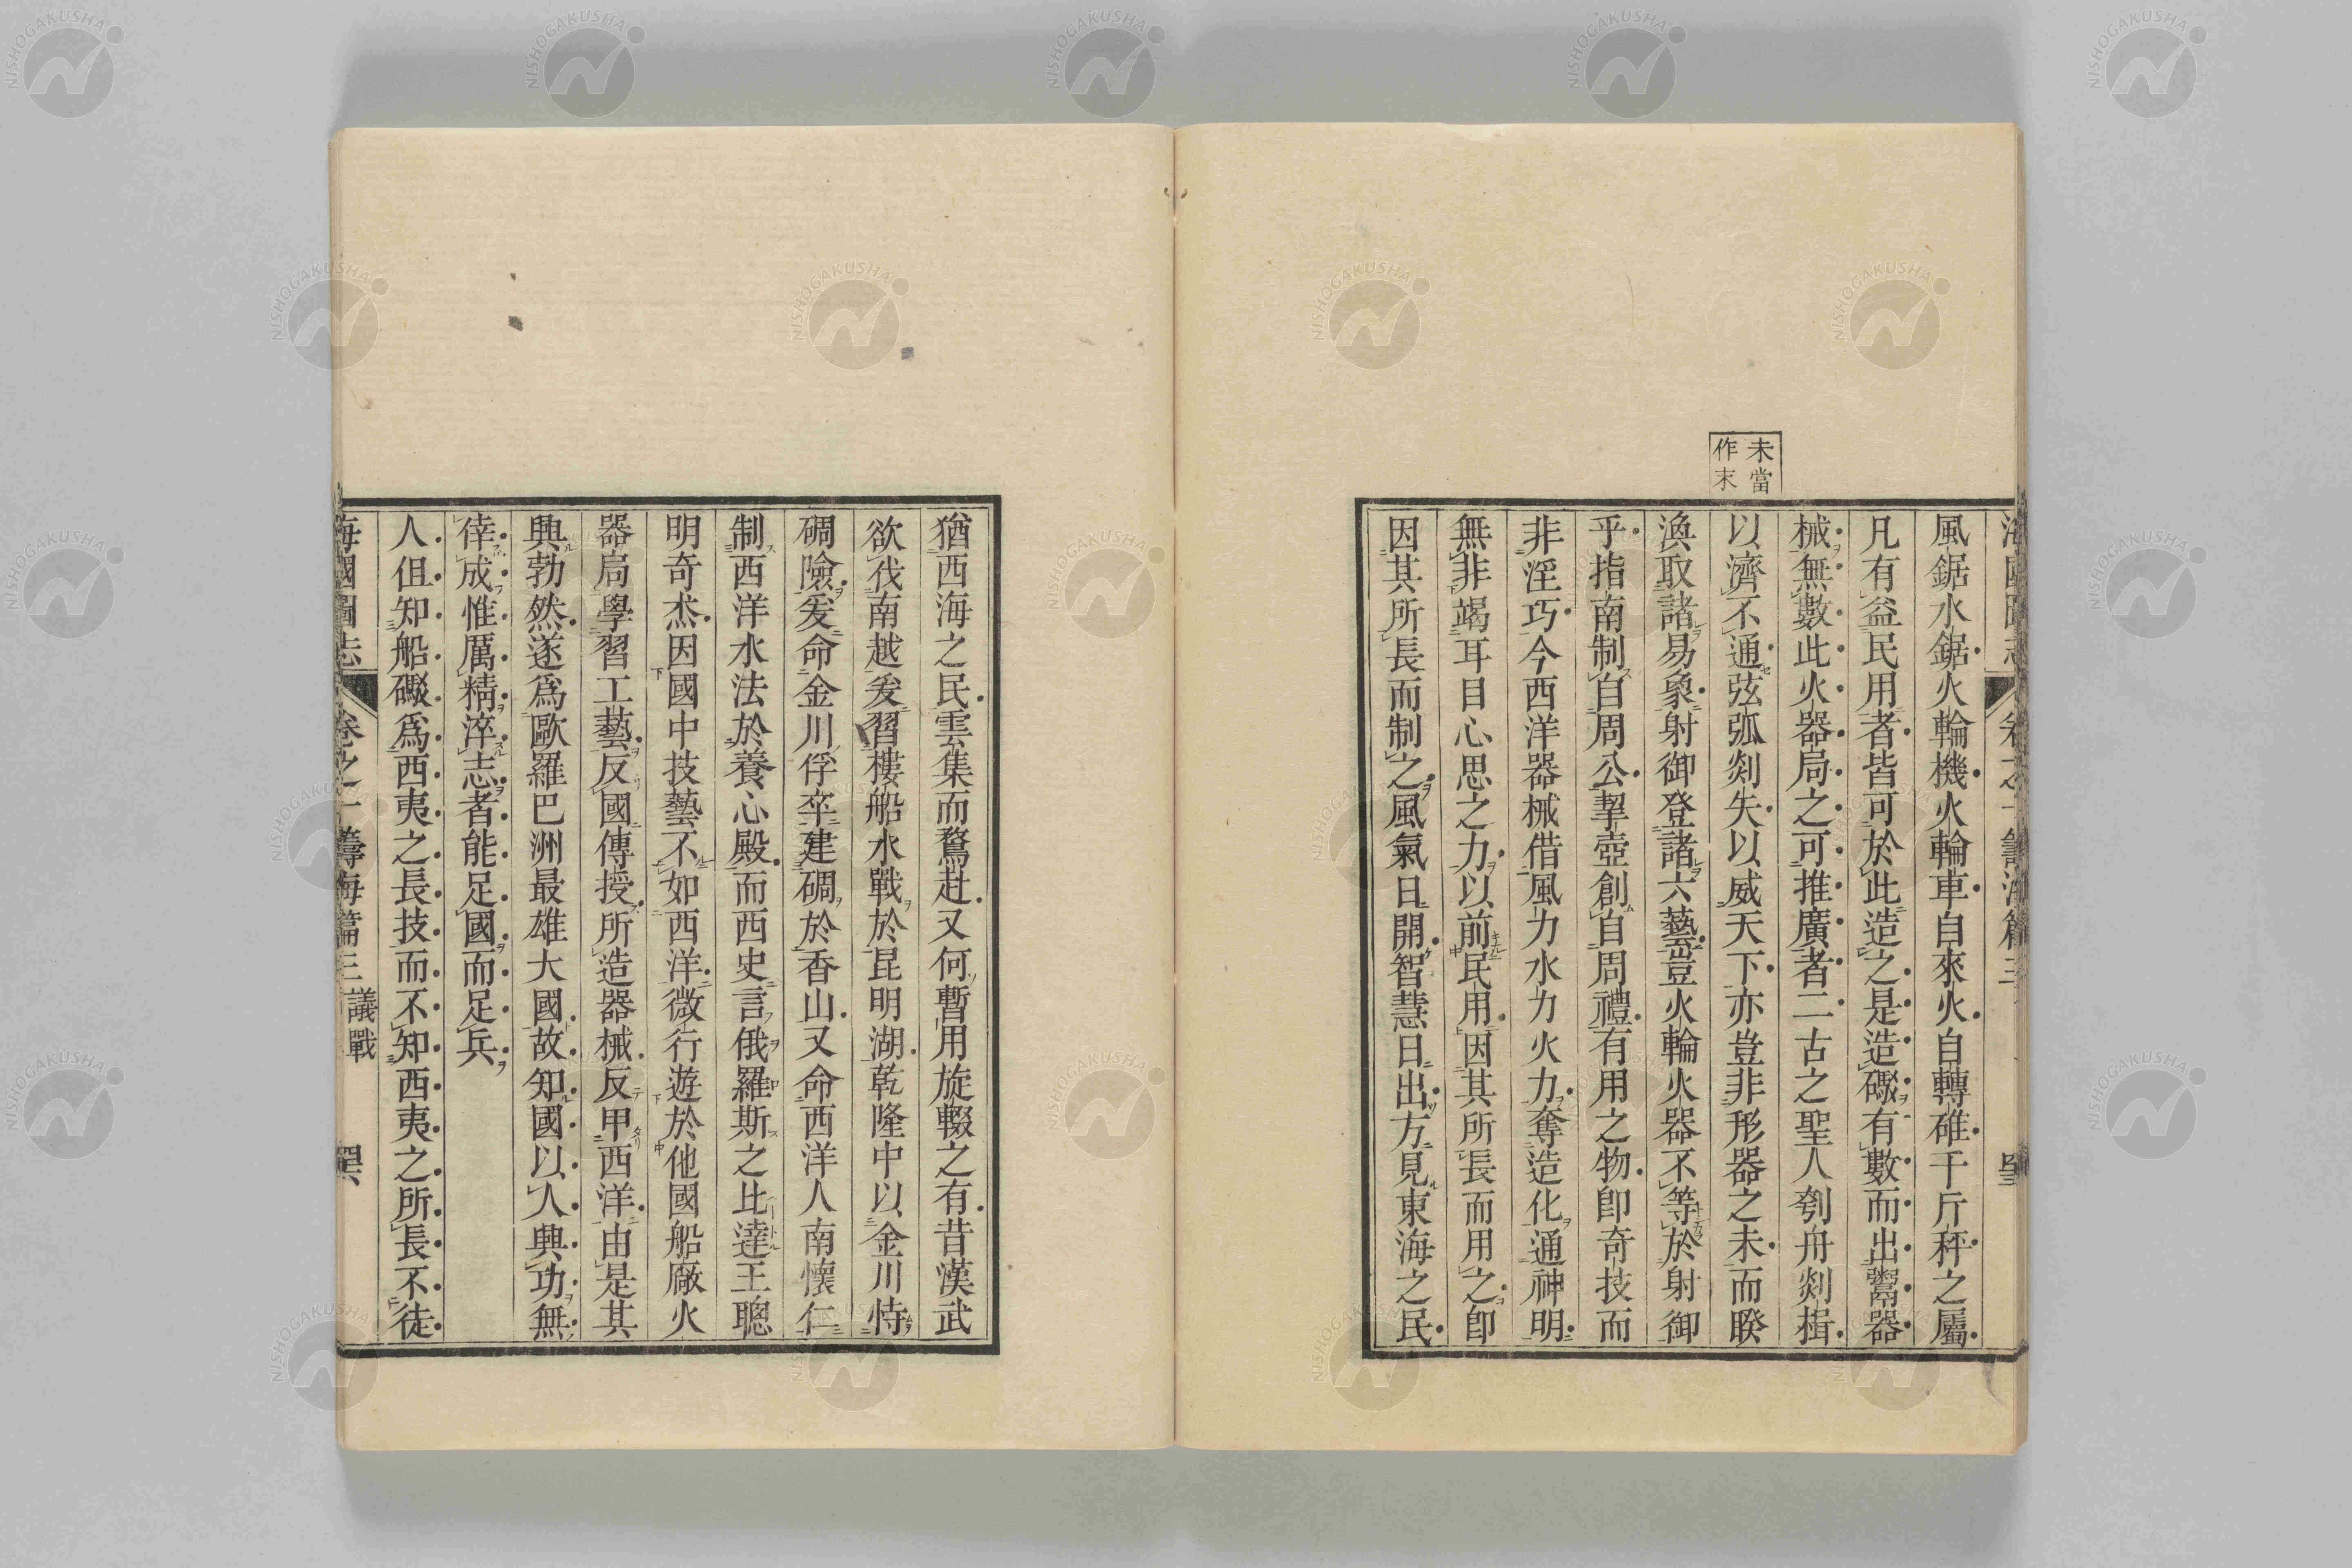 未當
作末
風鋸水鋸火輪機火輪車自來火自轉碓千斤秤之屬
凡有益民用者皆可於此造之是造礮有數而出鬻器
械無數此火器局之可推廣者二古之聖人刳舟剡楫
以濟不通弦弧剡矢以威天下亦豈非形器之未而睽
渙取諸易象射御登諸六藝豈火輪火器不等於射御
乎指南制自周公挈壺創自周禮有用之物卽奇技而
非淫巧今西洋器械借風力水力火力奪造化通神明
無非竭耳目心思之力以前民用因其所長而用之卽
因其所長而制之風氣日開智慧日出方見東海之民
猶西海之民雲集而鶩赴又何暫用旋輟之有昔漢武
欲伐南越爰習樓船水戰於昆明湖乾隆中以金川恃
碉險爰命金川俘卒建碉於香山又命西洋人南懷仁
制西洋水法於養心殿而西史言俄羅斯之比達王聰
明奇杰因國中技藝不如西洋微行遊於他國船廠火
器局學習工藝反國傳授所造器械反甲西洋由是其
興勃然遂爲歐羅巴洲最雄大國故知國以人興功無
倖成惟厲精淬志者能足國而足兵
人但知船礮爲西夷之長技而不知西夷之所長不徒
海國圖志 卷之一 籌海篇三 議戰
NISHOGAKUSHA